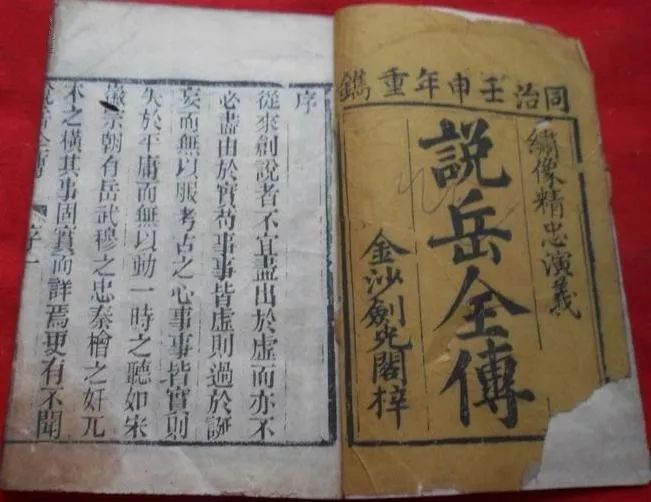 同治壬申年重鐫
繡像精忠演義
說岳全傳
金沙劍閣梓
序
從來創說者不宜盡出於虛而亦不
必盡由於實苟事事皆虛則過於誕
妄而無以服考古之心事事皆實則
失於平庸而無以動一時之聽如宋
徽宗朝有岳武穆之忠秦檜之奸兀
术之橫其事固實而詳焉更有不聞
說岳全傳 序一